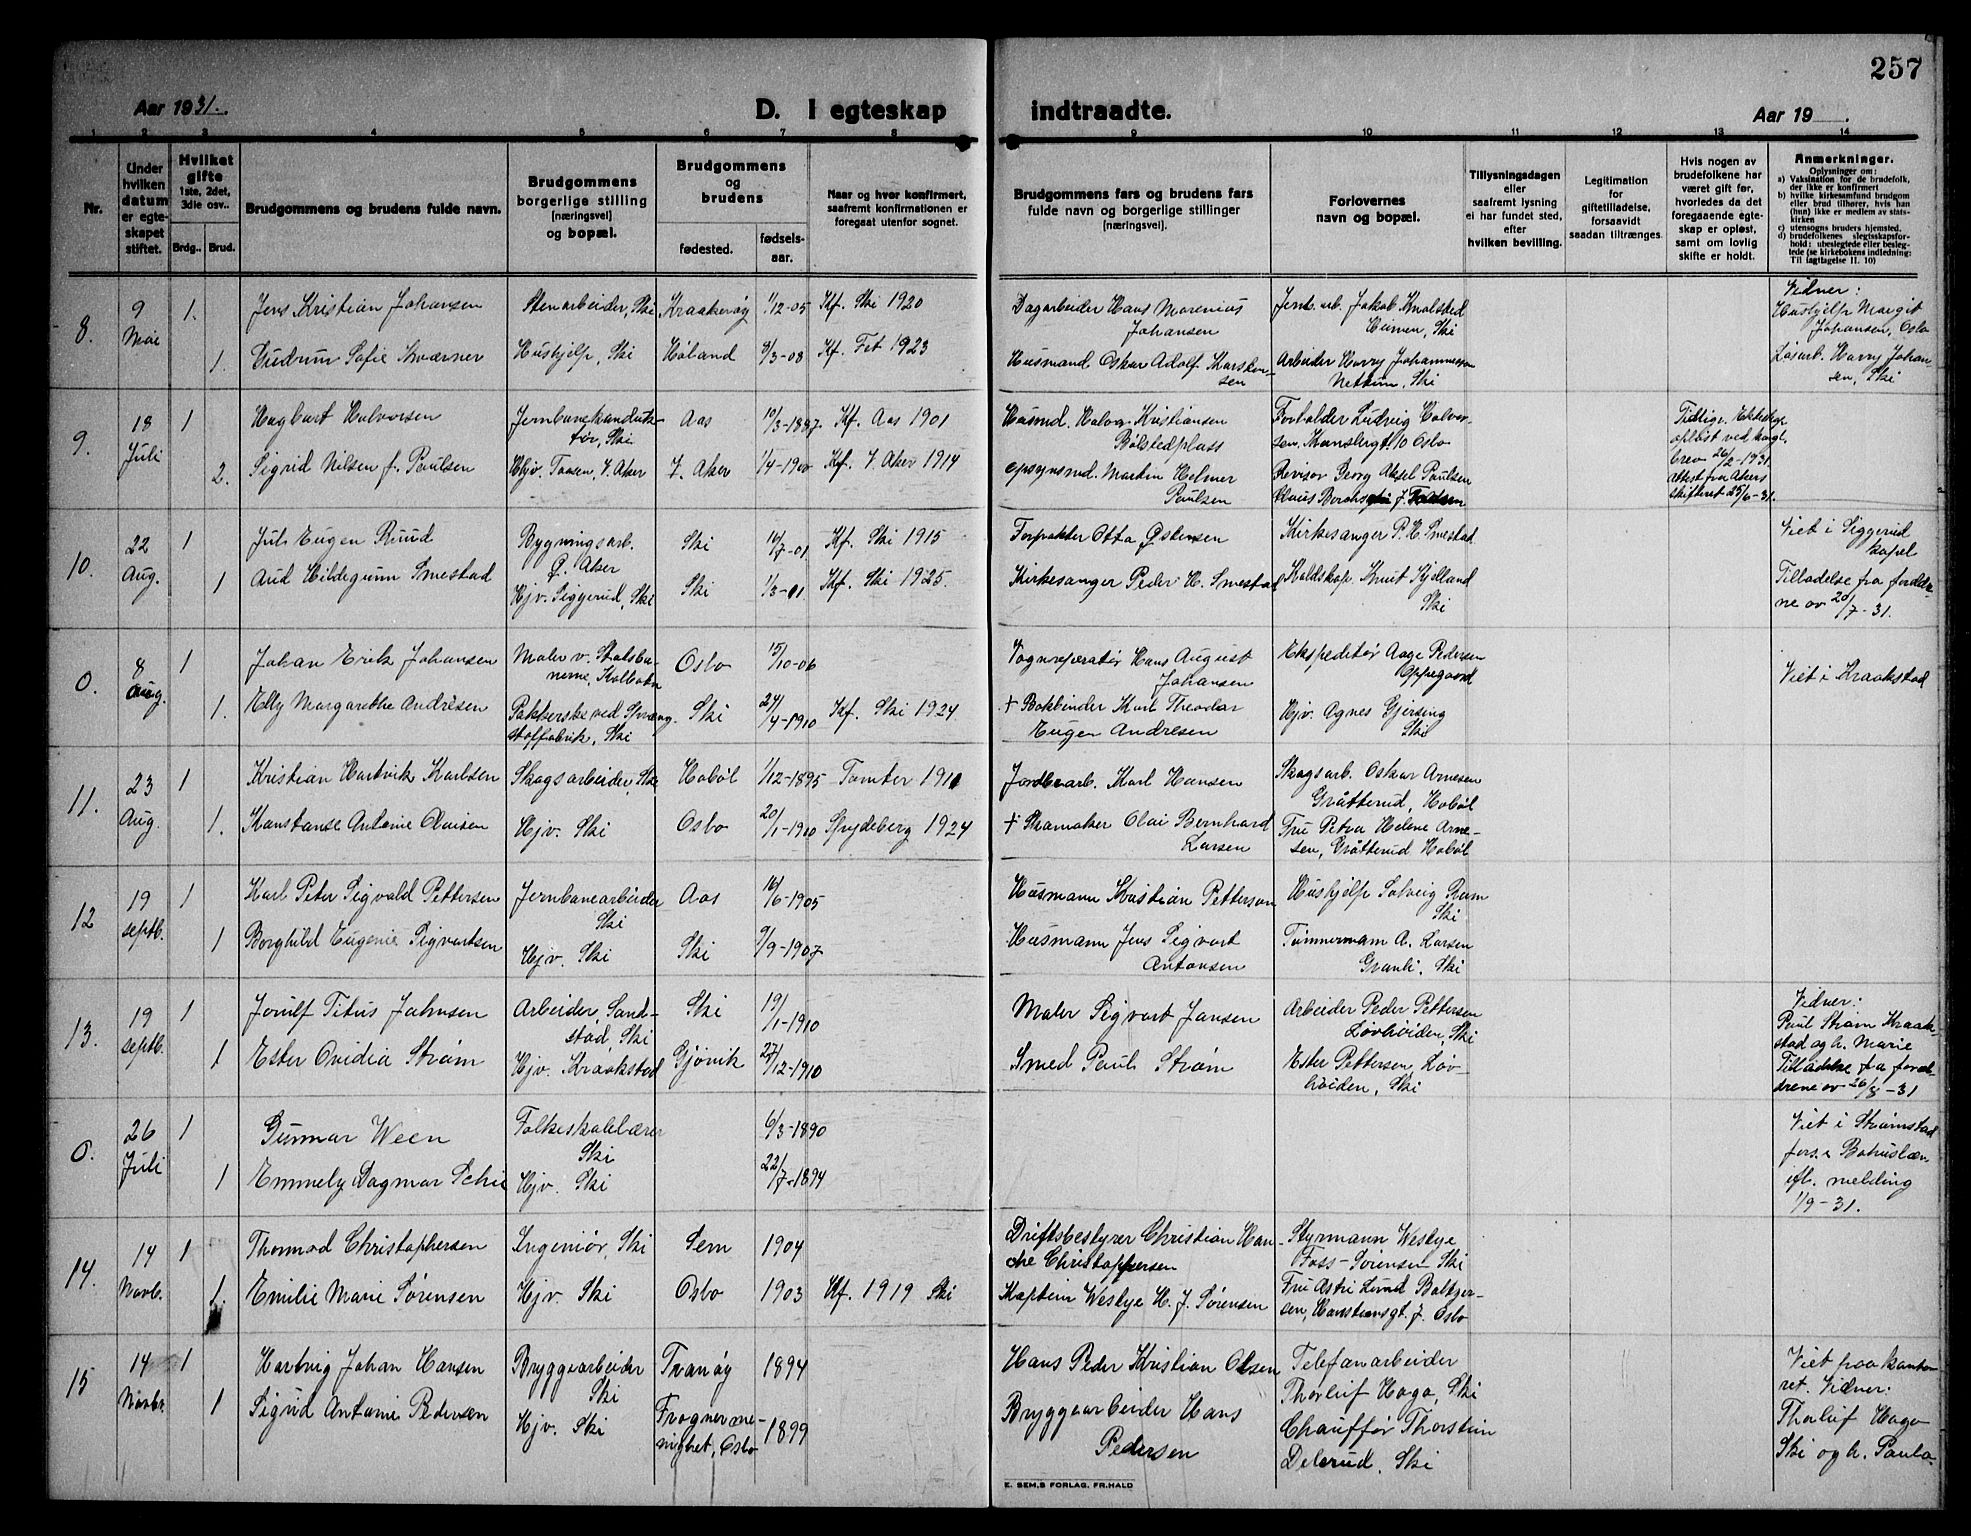 257
Aar 1931.
D. I egteskap indtraadte.
Aar 19
1 2 3 4 5 6 7 8 9 10 11 12 13 14
Nr.
Under hvilken datum er egteskapet stiftet.
Hvilket gifte 1ste, 2det, 3die osv..
Brdg.. Brud.
Brudgommens og brudens fulde navn.
Brudgommens borgerlige stilling [næringsvei] og bopæl.
Brudgommens og brudens
fødested. fødselsaar.
Naar og hvor konfirmert, saafremt konfirmationen er foregaat utenfor sognet.
Brudgommens fars og brudens fars fulde navn og borgerlige stillinger (næringsvei).
Forlovernes navn og bopæl.
Tillysningsdagen eller saafremt lysning ei har fundet sted, efter hvilken bevilling.
Legitimation for giftetilladelse, forsaavidt saadan tiltrænges.
Hvis nogen av brudefolkene har været gift før, hvorledes da det foregaaende egteskap er opløst, samt om lovlig skifte er holdt.
Anmerkninger.
Oplysninger om:
a) Vaksination for de brudefolk, der ikke er konfirmert
b) hvilke kirkesamfund brudgom eller brud tilhører, hvis han (hun) ikke er medlem av statskirken
c) utensogns bruders hjemsted.
d) brudefolkenes slegtsskapsforhold: ubeslegtede eller beslegtede (se kirkebokens indledning: Til iagttagelse II. 10)
8. 9 Mai 1. Jens Kristian Johansen Stenarbeider, Ski Kraakerøy 1/12-05 Kf. Ski 1920 Dagarbeider Hans Marenius Johansen Jernb. arb. Jakob Knolstad Heimen, Ski
Vidner: Hushjelp Margit Johansen, Oslo
1. Gudrun Sofie Kværner Hushjelp, Ski Høland 9/3-08 Kf. Fet 1923 Husmand Oskar Adolf Karstensen Arbeider Harry Johannesen Nettum, Ski
Løsarb. Harry Johansen, Ski
9. 18 Juli 1 Hagbart Halvorsen Jernbanekonduktør, Ski Aas 10/3-1887. Kf. Aas 1901 Husmd. Halvor Kristiansen Bølstedplass Forholder Ludvig Halvorsen, Oslo
Tidlige. Ekteskap opløst ved kongl. brev 26/2-1931. Attest fra Akers skifteret 25/6-31.
2. Sigrid Nilsen f. Paulsen Hjv. Taasen, V. Aker V. Aker 1/4-1900 Kf. V. Aker 1914 opsynsmd. Martin Helmer Paulsen Revisor Georg Aksel Paulsen
10. 22 Aug. 1 Jul. Eugen Ruud Bygningsarb. Ø. Aker Ski 16/7-01 Kf. Ski 1915 Forpakter Otto Østensen Kirkesanger P. H. Smestad
Viet i Siggerud kapel
1 Aud Hildegunn Smestad Hjv. Siggerud, Ski Ski 1/3-11 Kf. Ski 1925. Kirkesanger Peder H. Smestad Knut Sydland Ski
Tilladelse fra forældrene av 20/7-31.
0. 8 Aug. 1 Johan Erik Johansen Maler v. Statsbanerne, Kolbotn Oslo 15/10-06 Vognreperatør Hans August Johansen Ekspeditør Aage Pedersen Oppegaard
Viet i Kraakstad
1. Elly Margarethe Andrésen Pakkerske ved Sprængstoffabrik, Ski Ski 24/4-1910 Kf. Ski 1924. + Bokbinder Karl Theodor Eugen Andresen Hjv. Agnes Gjersing Ski
11. 23 Aug. 1 Kristian Hartvik Karlsen Skogsarbeider, Ski Hobøl 1/12-1895 Tomter 1910 Jordbrarb. Karl Hansen Skogsarb. Oskar Arnesen Gråtterud, Hobøl
1. Konstanse Antonie Olausen Hjv. Ski Oslo 20/1-1910 Spydeberg 1924 + Skomaker Olai Bernhard Larsen Fru Petra Helene Arnesen, Gråtterud Hobøl
12 19 septb. 1 Karl Peter Sigvald Pettersen Jernbanearbeider Ski Aas 16/6-1905 Husmann Kristian Petterson Hushjelp Solveig Rum Ski
1 Borghild Eugenie Sigvartsen Hjv. Ski Ski 9/9-1907 Husmann Jens Sigvart Antonsen Tømmermann A. Larsen Granli, Ski
13. 19 septb. 1 Jorulf Titus Johnsen Arbeider, Sandstad, Ski Ski 19/1-1910 Maler Sigvart Jansen Arbeider Peder Pettersen Løvhøiden, Ski
Vidner: Paul Strøm Kraakstad og h. Marie
1 Ester Ovidia Strøm Hjv. Kraakstad Gjøvik 27/12-1910 Smed Paul Strøm Ester Pettersen, Løvhøiden, Ski
Tilladelse fra forældrene av 26/8-31
0. 26 Juli 1 Gunnar Ween Folkeskolelærer Ski 6/3-1890
Viet i Strømstad
1 Emmely Dagmar Schie Hjv. Ski 22/7-1894
Bohuslæn efl. melding 1/9-31.
14. 14 Novb. 1 Thormod Christophersen Ingeniør, Ski Sem 1904 Driftsbestyrer Christian Hanche Christophersen Styrmann Westye Foss-Sørensen Ski
1. Emilie Marie Sørensen Hjv. Ski Oslo 1903 Kf. 1919 Ski Kaptein Westye H. J. Sørensen Fru Astri Lund Baltzersen, Oslo
15 14 Novbr. 1 Hartvig Johan Hansen Bryggearbeider Ski Tranøy 1894 Hans Peder Kristian Olsen Telefonarbeider Thorleif Haga, Ski
Viet paa kontoret. Vidner:
1 Sigrid Antonie Pedersen Hjv. Ski Frogner menighet, Oslo 1899 Bryggearbeider Hans Pedersen Chauffør Thorstein Delerud, Ski
Thorleif Haga Ski og h. Paula.
E. SEM.S FORLAG. FR.HALD